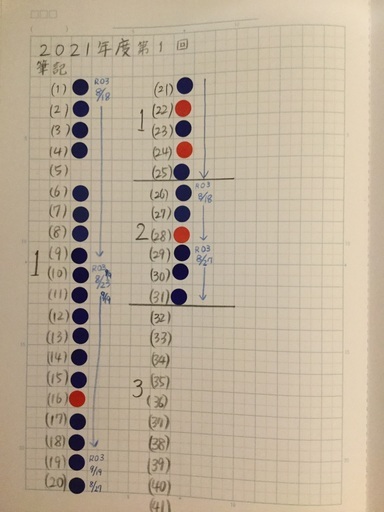 2021年度第1回
筆記
(1) R03
8/18
(2)
(3)
(4)
(5)
(6)
(7)
(8)
(9)
1
(10)
(11)
(12)
(13)
(14)
(15)
(16)
(17)
(18)
(19) R03
(20) 8/27
(21)
(22)
1
(23)
(24)
(25)
(26) R03
8/18
(27)
2
(28)
(29) R03
8/27
(30)
(31)
(32)
(33)
(34)
3
(35)
(36)
(37)
(38)
(39)
(40)
(41)